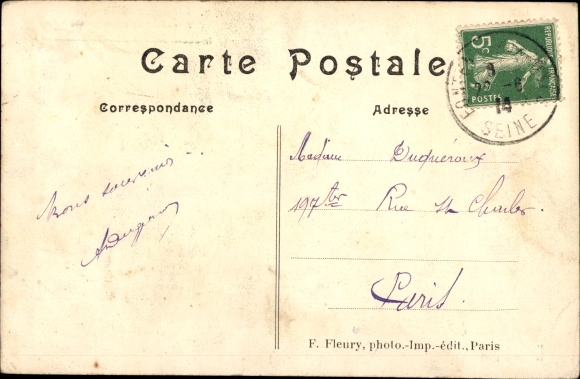 Carte Postale
Correspondance
Adresse
5c
REPUBLIQUE FRANÇAISE
POSTES
6
14
SEINE
Bons souvenirs...
Madame Duquéroux
197 ter Rue St Charles.
Paris.
F. Fleury, photo.-Imp.-édit., Paris